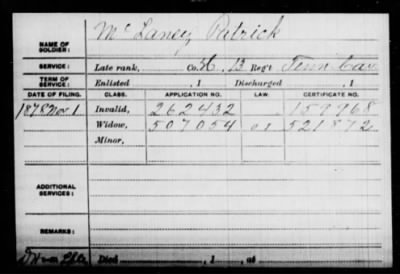 NAME OF SOLDIER: McLaney, Patrick
SERVICE: Late rank, Co. K, 13 Reg't Tenn Cav
TERM OF SERVICE: Enlisted , 1 Discharged , 1
DATE OF FILING. CLASS. APPLICATION NO. LAW. CERTIFICATE NO.
1878 Nov. 1 Invalid, 262432 159968
Widow, 507054 521872
Minor,
ADDITIONAL SERVICES:
REMARKS:
Died , 1 , at